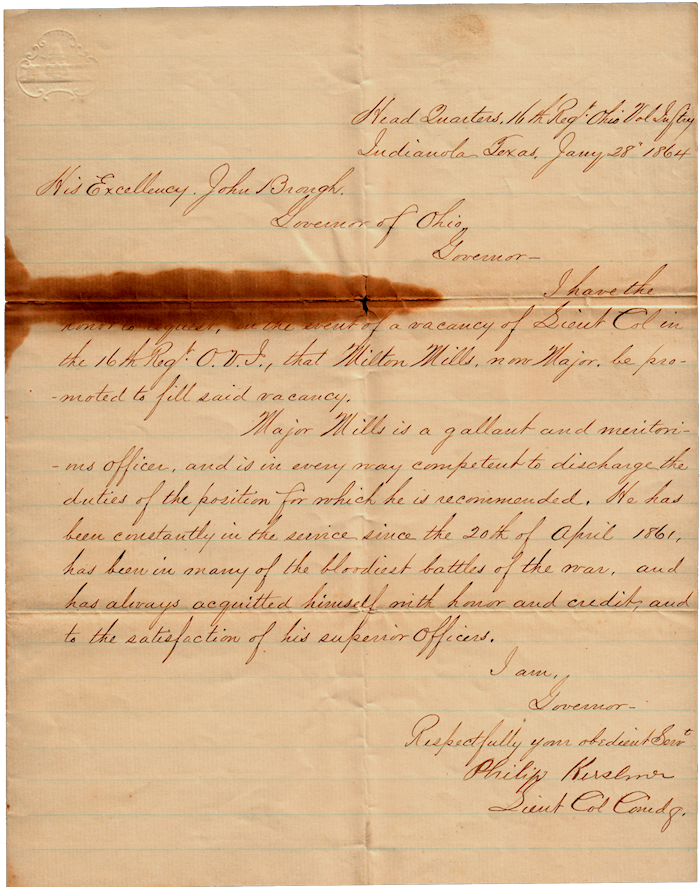 Head Quarters, 16th Regt. Ohio Vol Inftry
Indianola Texas, Jany 28" 1864
His Excellency. John Brough.
Governor of Ohio,
Governor—
I have the
honor to request, in the event of a vacancy of Lieut Col in
the 16th Regt. O.V.I., that Milton Mills, now Major, be pro-
-moted to fill said vacancy.
Major Mills is a gallant and meritori-
-ous officer, and is in every way competent to discharge the
duties of the position for which he is recommended. He has
been constantly in the service since the 20th of April 1861,
has been in many of the bloodiest battles of the war, and
has always acquitted himself with honor and credit, and
to the satisfaction of his superior Officers.
I am,
Governor—
Respectfully your obedient Servt
Philip Kershner
Lieut Col Comdg.